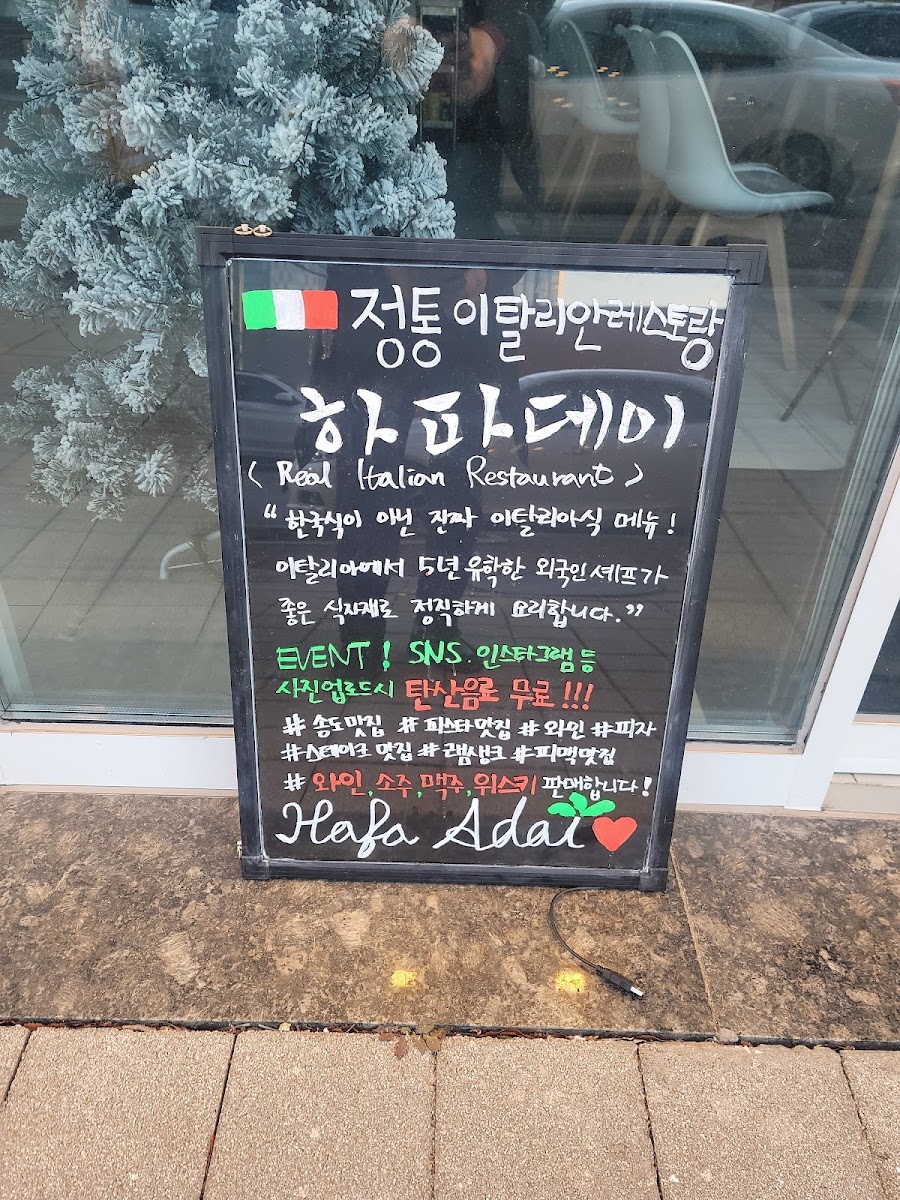 정통 이탈리안레스토랑
하파데이
< Real Italian Restaurant >
“ 한국식이 아닌 진짜 이탈리아식 메뉴!
이탈리아에서 5년 유학한 외국인 셰프가
좋은 식자재로 정직하게 요리합니다.”
EVENT! SNS. 인스타그램 등
사진업로드시 탄산음료 무료!!!
# 송도맛집 # 피스타맛집 # 와인 # 피자
# 스테이크 맛집 # 램생크 # 피맥맛집
# 와인, 소주, 맥주, 위스키 판매합니다!
Hafa Adai